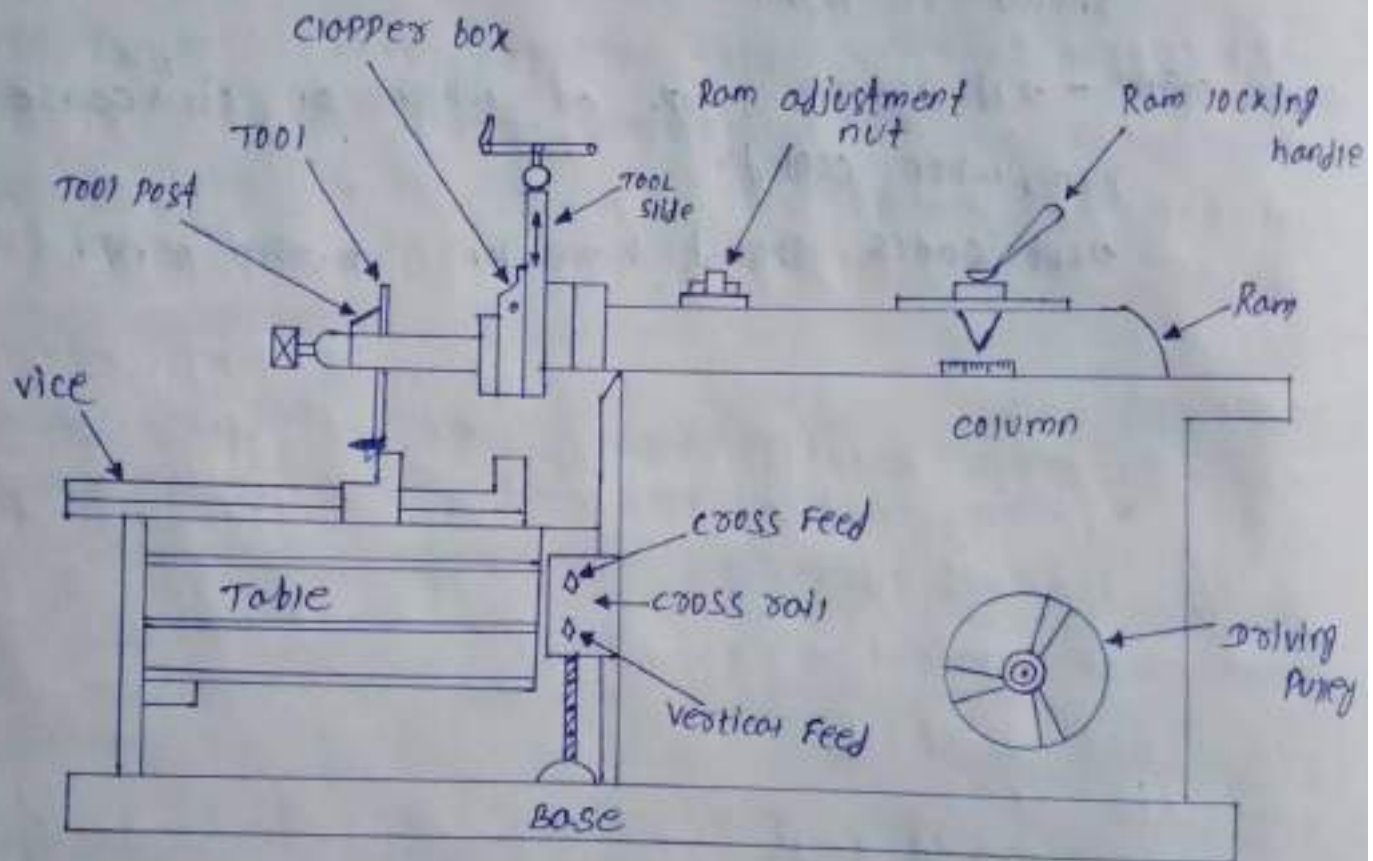 Clapper box
Ram adjustment
nut
Ram locking
handle
Tool
Tool Post
TOOL
slide
Ram
vice
column
cross Feed
Table
cross rail
Driving
Pulley
vertical Feed
Base